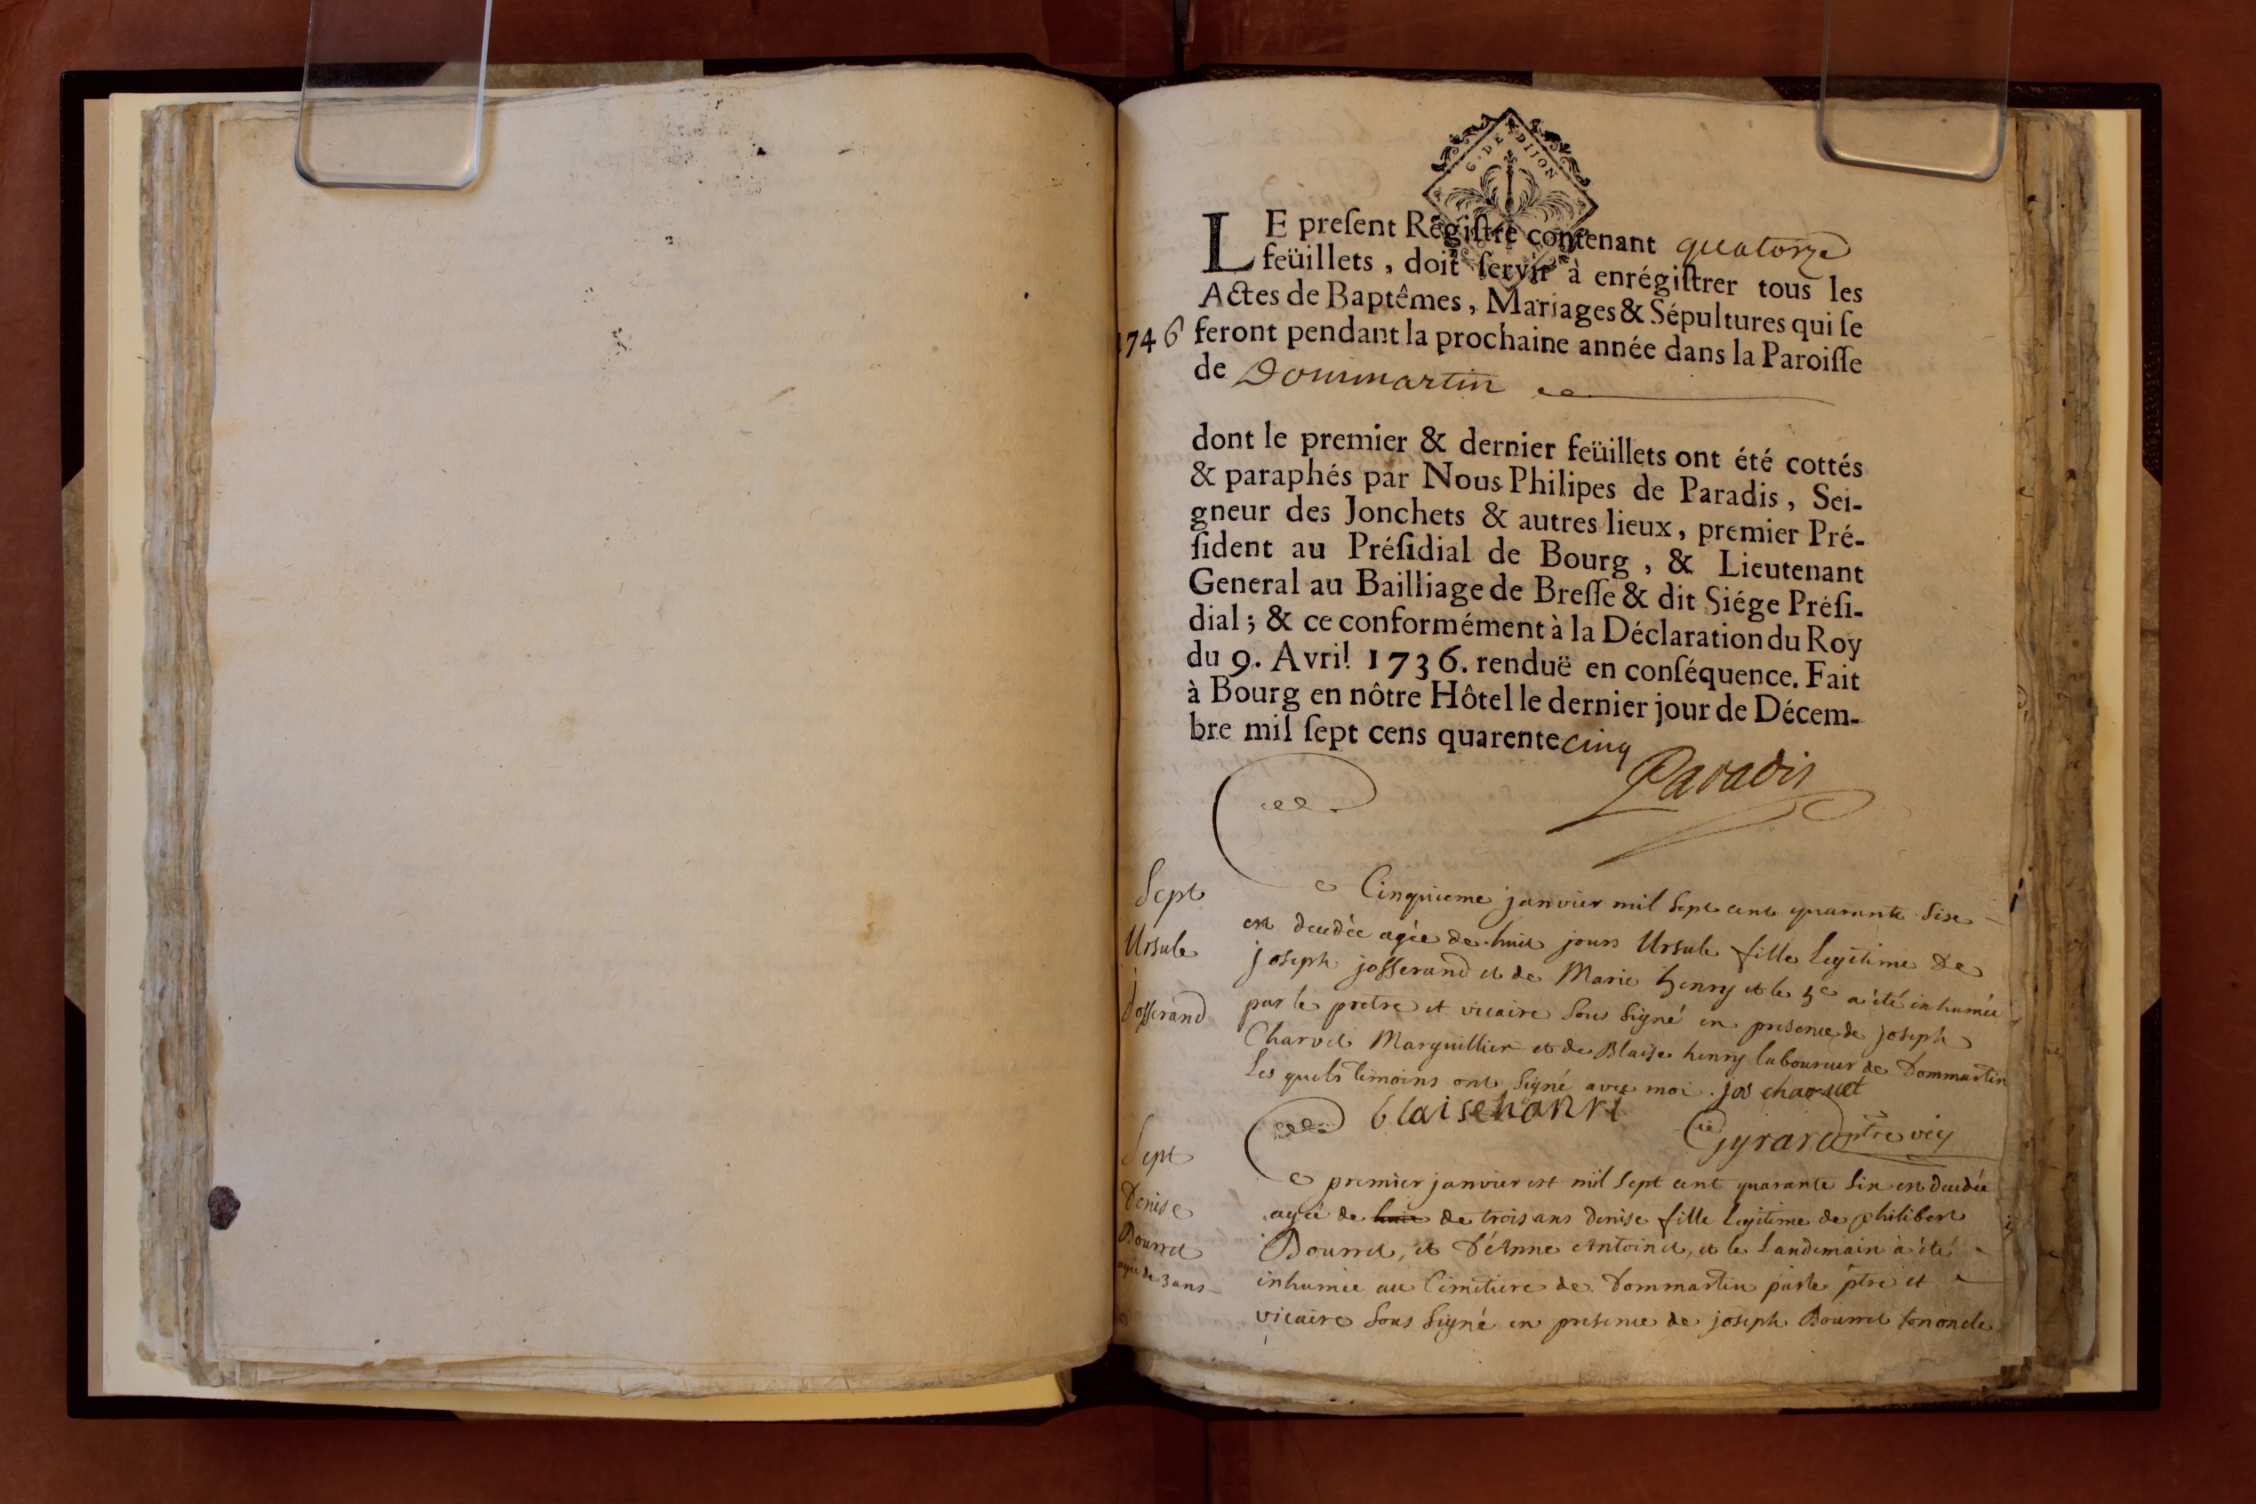 G. DE DIJON
LE preſent Régiſtre contenant quatorze
feüillets, doit ſervir à enrégiſtrer tous les
Actes de Baptêmes, Mariages & Sépultures qui ſe
1746 feront pendant la prochaine année dans la Paroiſſe
de Dommartin
dont le premier & dernier feüillets ont été cottés
& paraphés par Nous Philipes de Paradis, Sei-
gneur des Jonchets & autres lieux, premier Pré-
ſident au Préſidial de Bourg, & Lieutenant
General au Bailliage de Breſſe & dit Siége Préſi-
dial; & ce conformément à la Déclaration du Roy
du 9. Avril 1736. renduë en conſéquence. Fait
à Bourg en nôtre Hôtel le dernier jour de Décem-
bre mil ſept cens quarente cinq
Paradis
Sept
Ursule
Josserand
Le Cinquieme janvier mil sept cent quarante six
est decedée agée de huit jours Ursule fille legitime de
joseph josserand et de Marie henry et le 5e a été inhumée
par le pretre et vicaire sous signé en presence de joseph
Charvet Marguillier et de Blaise henry laboureur de Dommartin
Les quels temoins ont signé avec moi. jos charvet
blaise hanri
Gyrard ptre vic
Sept
Denise
Bourret
agée de 3 ans
Le premier janvier est mil sept cent quarante six est decedée
agée de huit de trois ans denise fille legitime de philibert
Bourret, et d'Anne Antoinet, et le landemain a été
inhumée au Cimetiere de Dommartin par le ptre et
vicaire sous signé en presence de joseph Bourret son oncle